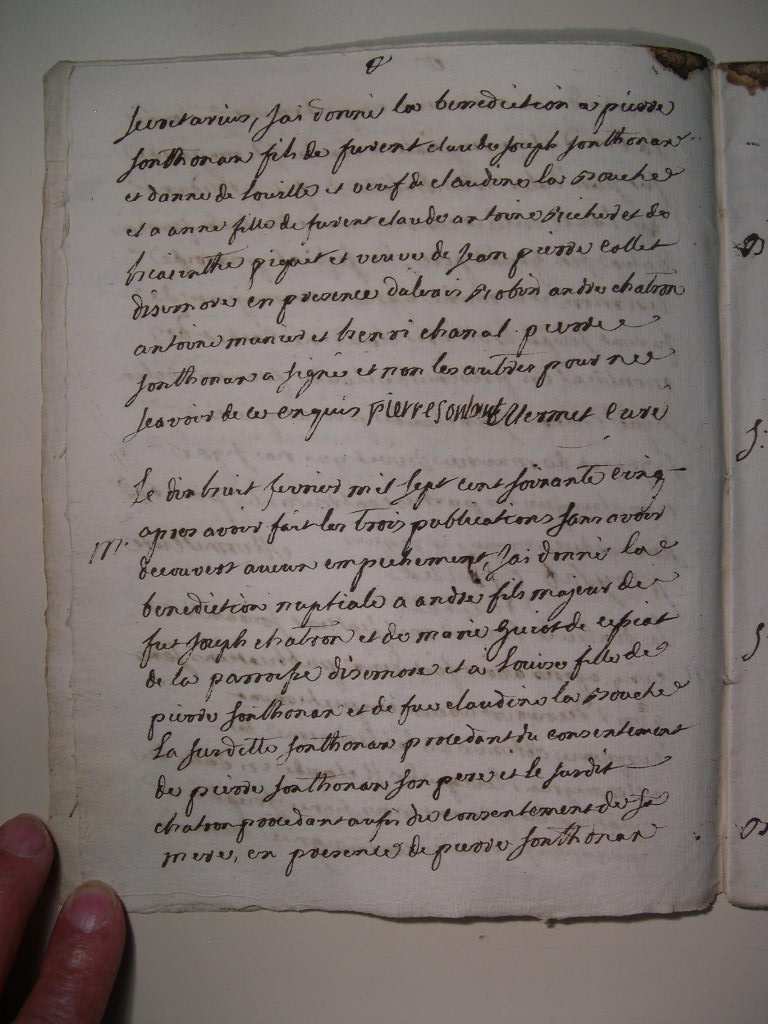 Secretarius, jai donné la benediction a pierre
Sonthonax fils de furent claude joseph Sonthonax
et danne de et veuf de claudine la Rouche
et a anne fille de furent claude antoine Richer et de
hiacinthe piquet et veuve de Jean pierre collet
disernore en presence Robin andre chatron
antoine munier et henri chanal pierre
Sonthonax a signé et non les autres pour ne
scavoir de ce enquis pierre sontonax Vermet Curé
Le dixhuit fevrier mil sept cent soixante cinq
M. apres avoir fait les trois publications sans avoir
decouvert aucun empechement, jai donné la
benediction nuptiale a andré fils majeur de
fut joseph chatron et de marie Guiot de cessiat
de la parroisse disernore et a Louise fille de
pierre Sonthonax et de fue claudine la Rouche
La surditte Sonthonax procedant du consentement
de pierre Sonthonax son pere et le surdit
chatron procedant aussi du consentement de sa
mere, en presence de pierre Sonthonax